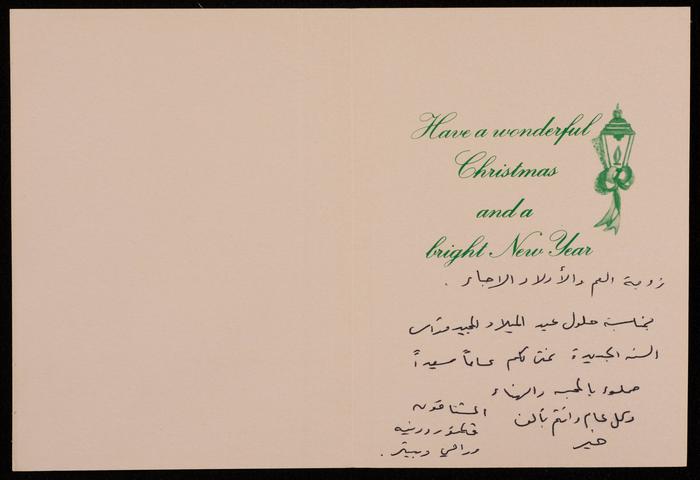 Have a wonderful
Christmas
and a
bright New Year
زوجة العم والأولاد الاحباء .
بمناسبة حلول عيد الميلاد المجيد ورأس
السنه الجديدة نتمنى لكم عاماً سعيداً
مملوء بالمحبه والهناء
وكل عام وانتم بألف
خير
المشتاقون
وبيتر .